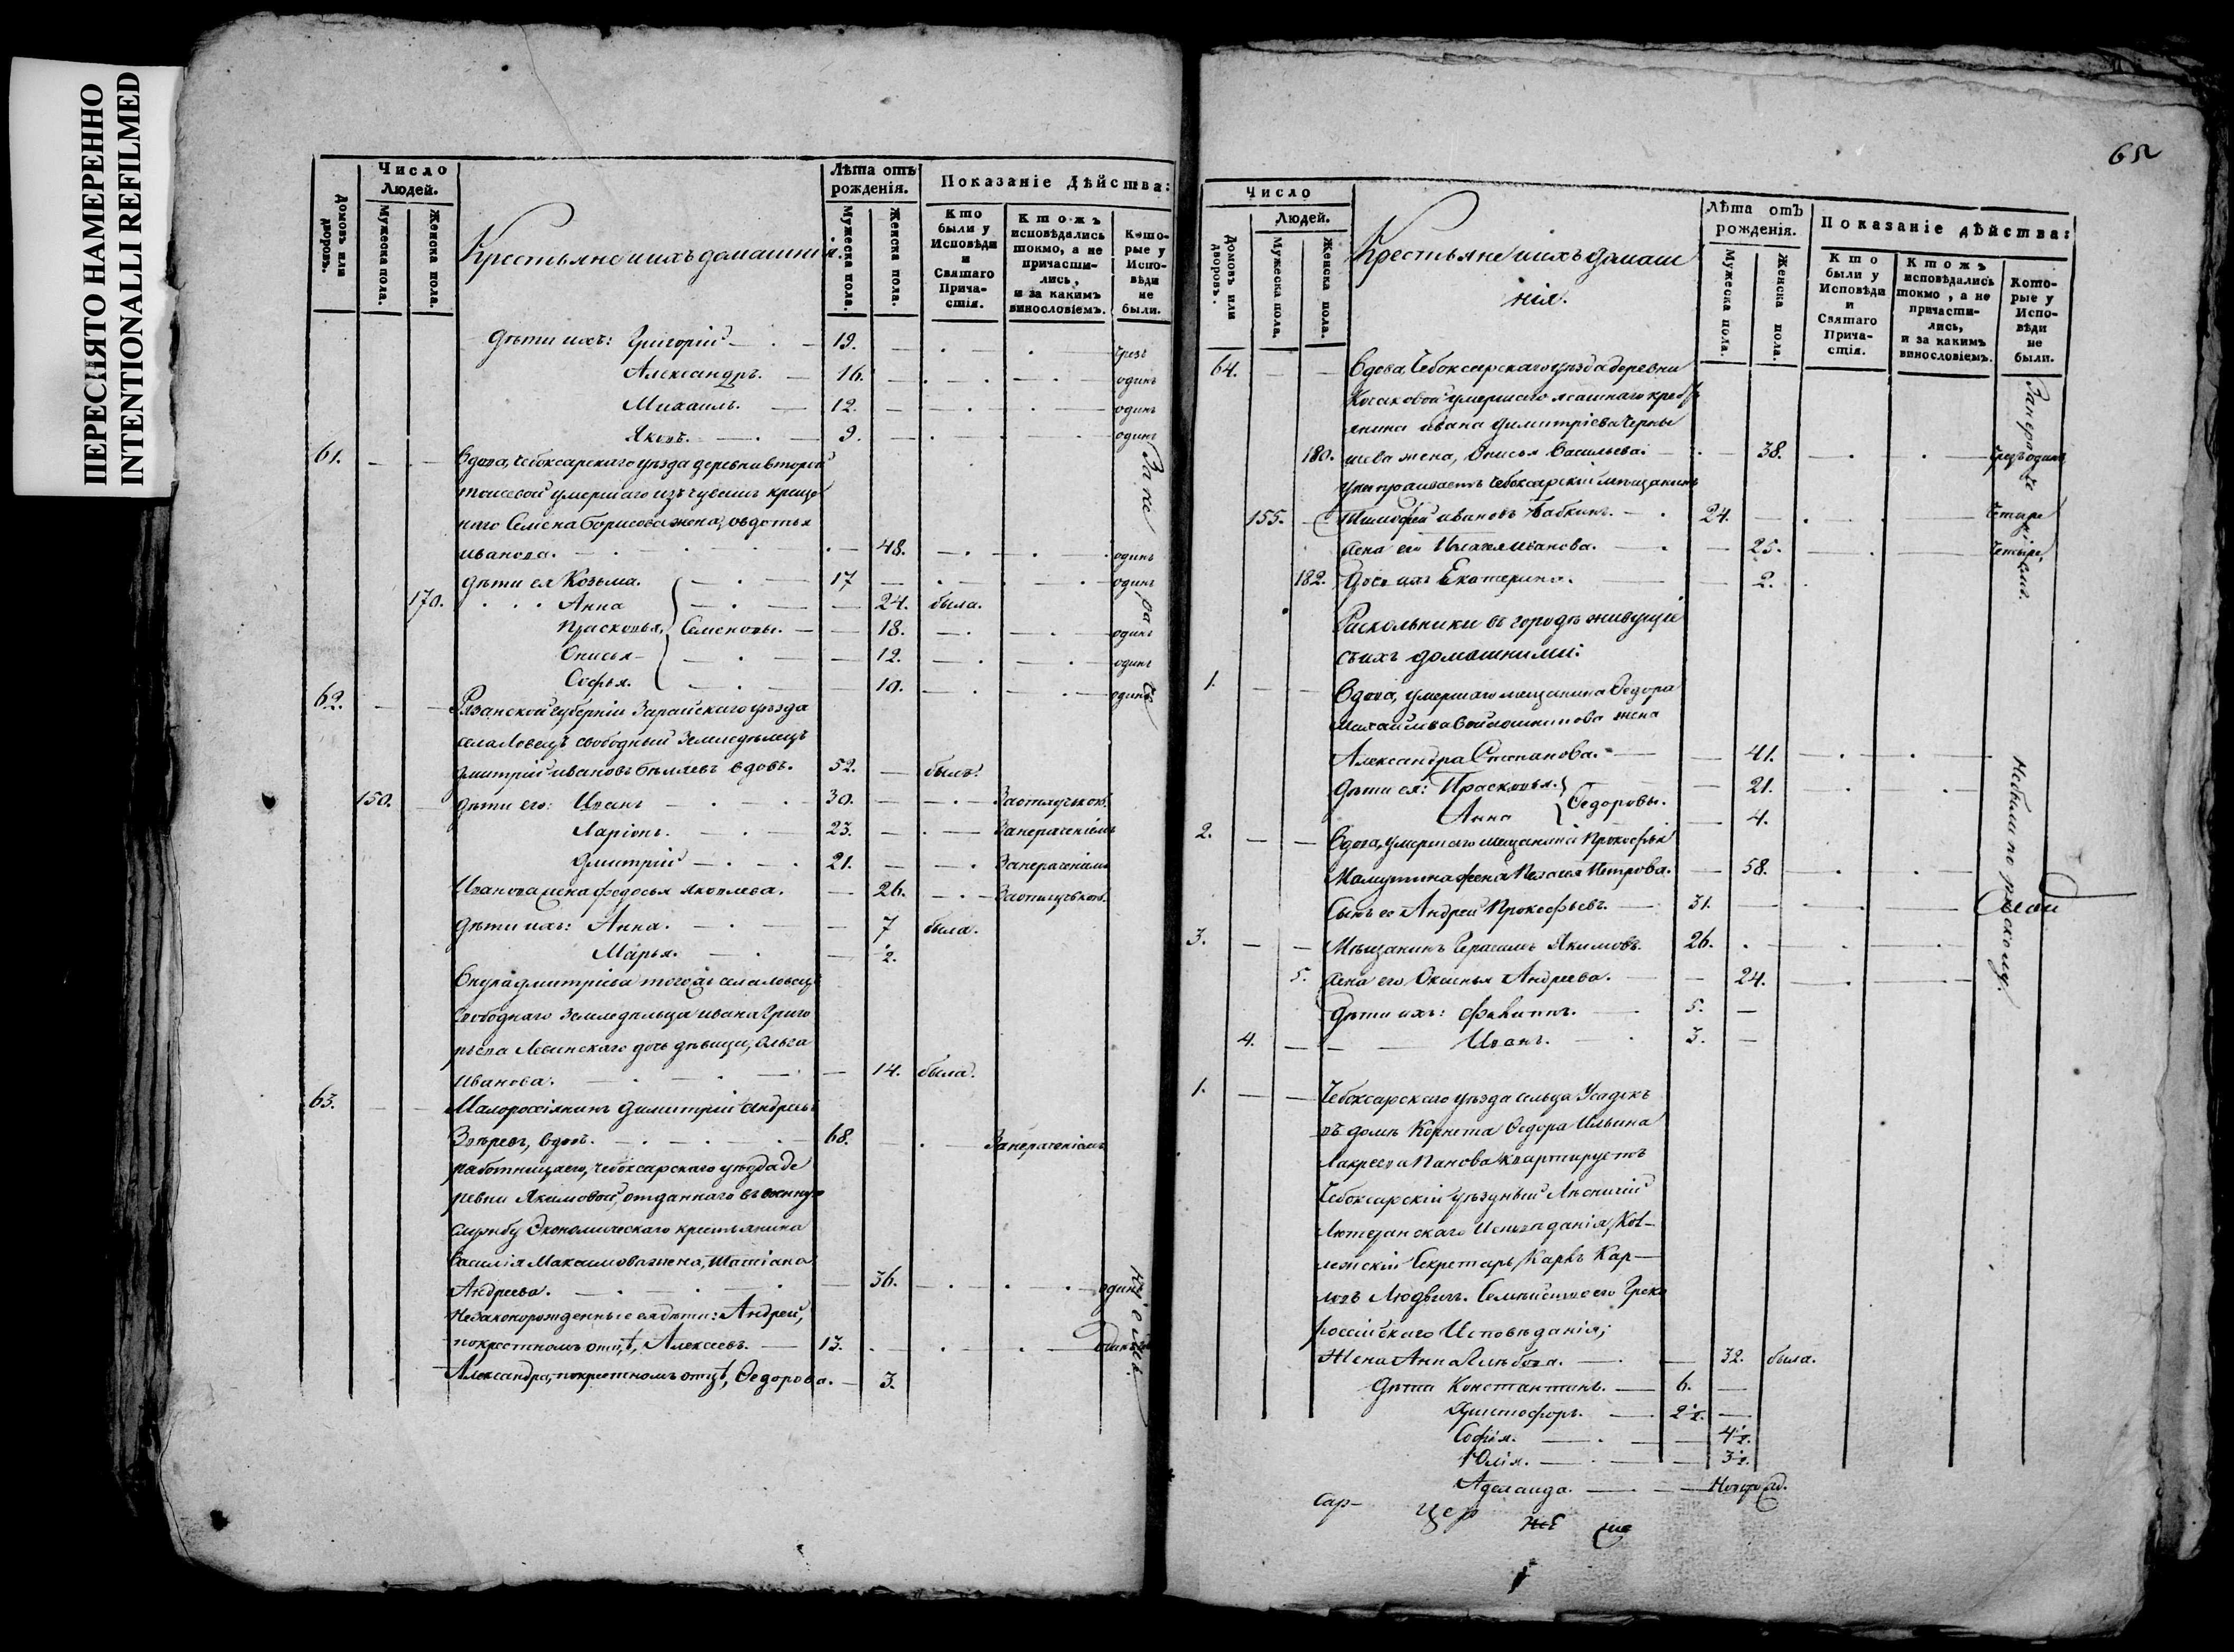 ПЕРЕСНЯТО НАМЕРЕННО
INTENTIONALLI REFILMED
Домовъ или дворовъ.
Число Людей.
Мужеска пола.
Женска пола.
Крестьяне и ихъ домашнія.
Лѣта отъ рожденія.
Мужеска пола.
Женска пола.
Показаніе Дѣйства:
Кто были у Исповѣди и Святаго Прича-стія.
Ктожъ исповѣдались токмо, а не причасти-лись, и за какимъ винословіемъ.
Кото-рые у Испо-вѣди не были.
дѣти ихъ: Григорій 19.
Александръ. 16. одинъ
Михаилъ. 12. одинъ
Яковъ. 9. одинъ
61. Вдова, Чебоксарскаго уѣзда деревни второй
умершаго изъ чувашъ креще
наго Семена Борисова жена, Ѳедотья
Иванова. 48. одинъ
дѣти ея Козьма. 17 одинъ
170. Анна 24. была.
Прасковья, Семеновы. 18. одинъ
Онисья 12. одинъ
Софья. 10. одинъ
62. Рязанской губерніи Зарайскаго уѣзда
села Ловецъ свободный земледѣлецъ
Дмитрій Ивановъ Бѣляевъ вдовъ. 52. былъ.
150. дѣти его: Иванъ 30. За отлучкою.
Ларіонъ. 23. За нераченіемъ
Дмитрій 21. За нераченіемъ
Иванова жена Федосья Яковлева. 26. За отлучкою.
дѣти ихъ: Анна. 7 была.
Марья. 2.
Внука Дмитріева того жъ села Ловецъ
Свободнаго земледѣльца Ивана Григо
рьева Ловинскаго дочь дѣвица, Ольга
Иванова. 14. была.
63. Малороссіянинъ Димитрій Андреевъ
Звѣревъ, вдовъ. 68. За нераченіемъ
работница его, Чебоксарскаго уѣзда де
ревни Якимовой, отданнаго въ военную
службу Экономическаго крестьянина
Василія Максимова жена, Татіана
Андреева. 36. одинъ
Незаконорожденные ея дѣти: Андрей,
по крестномъ отцѣ, Алексеевъ. 13. одинъ
Александра, по крестномъ отцѣ, Ѳедорова. 3.
За не ра че ніемъ.
65
Домовъ или дворовъ.
Число Людей.
Мужеска пола.
Женска пола.
Крестьяне и ихъ домаш
нія.
Лѣта отъ рожденія.
Мужеска пола.
Женска пола.
Показаніе дѣйства:
Кто были у Исповѣди и Святаго Прича-стія.
Ктожъ исповѣдались токмо, а не причасти-лись, и за какимъ винословіемъ.
Кото-рые у Испо-вѣди не были.
64. Вдова, Чебоксарскаго уѣзда деревни
умершаго ясашнаго кресть
янина Ивана Димитріева Черны
180. шева жена, Онисья Васильева. 38. чрезъ одинъ
проживаетъ Чебоксарскій мѣщанинъ
155. Тимофей Ивановъ Бабкинъ. 24. четыре
Жена его Пелагея Иванова. 25. четыре
182. Дочь ихъ Екатерина. 2.
За нераченіемъ.
Раскольники въ городѣ живущіе
съ ихъ домашними:
1. Вдова, умершаго мещанина Ѳедора
Михайлова жена
Александра Степанова. 41.
Дѣти ея: Прасковья. Ѳедоровы. 21.
Анна 4.
2. Вдова, умершаго мещанина Прокофья
жена Пелагея Петрова. 58.
Сынъ ея Андрей Прокофьевъ. 31.
3. Мѣщанинъ Герасимъ Якимовъ. 26.
5. Жена его Оксинья Андреева. 24.
Дѣти ихъ: Филиппъ. 5.
4. Иванъ. 3.
Не были по расколу.
1. Чебоксарскаго уѣзда сельца Усадокъ
въ домѣ Корнета Ѳедора Ильина
Панова квартируетъ
Чебоксарскій уѣздный Лѣсничій
Лютеранскаго Исповѣданія, Кол-
лежскій Секретарь Карлъ Кар-
ловъ Людвигъ. Семейство его Греко
россійскаго Исповѣданія;
Жена Анна Глѣбова. 32. была.
Дѣти Константинъ. 6.
Христофоръ. 2½.
Софія. 4½.
Юлія. 3½.
Аделаида.
Сар-
цер